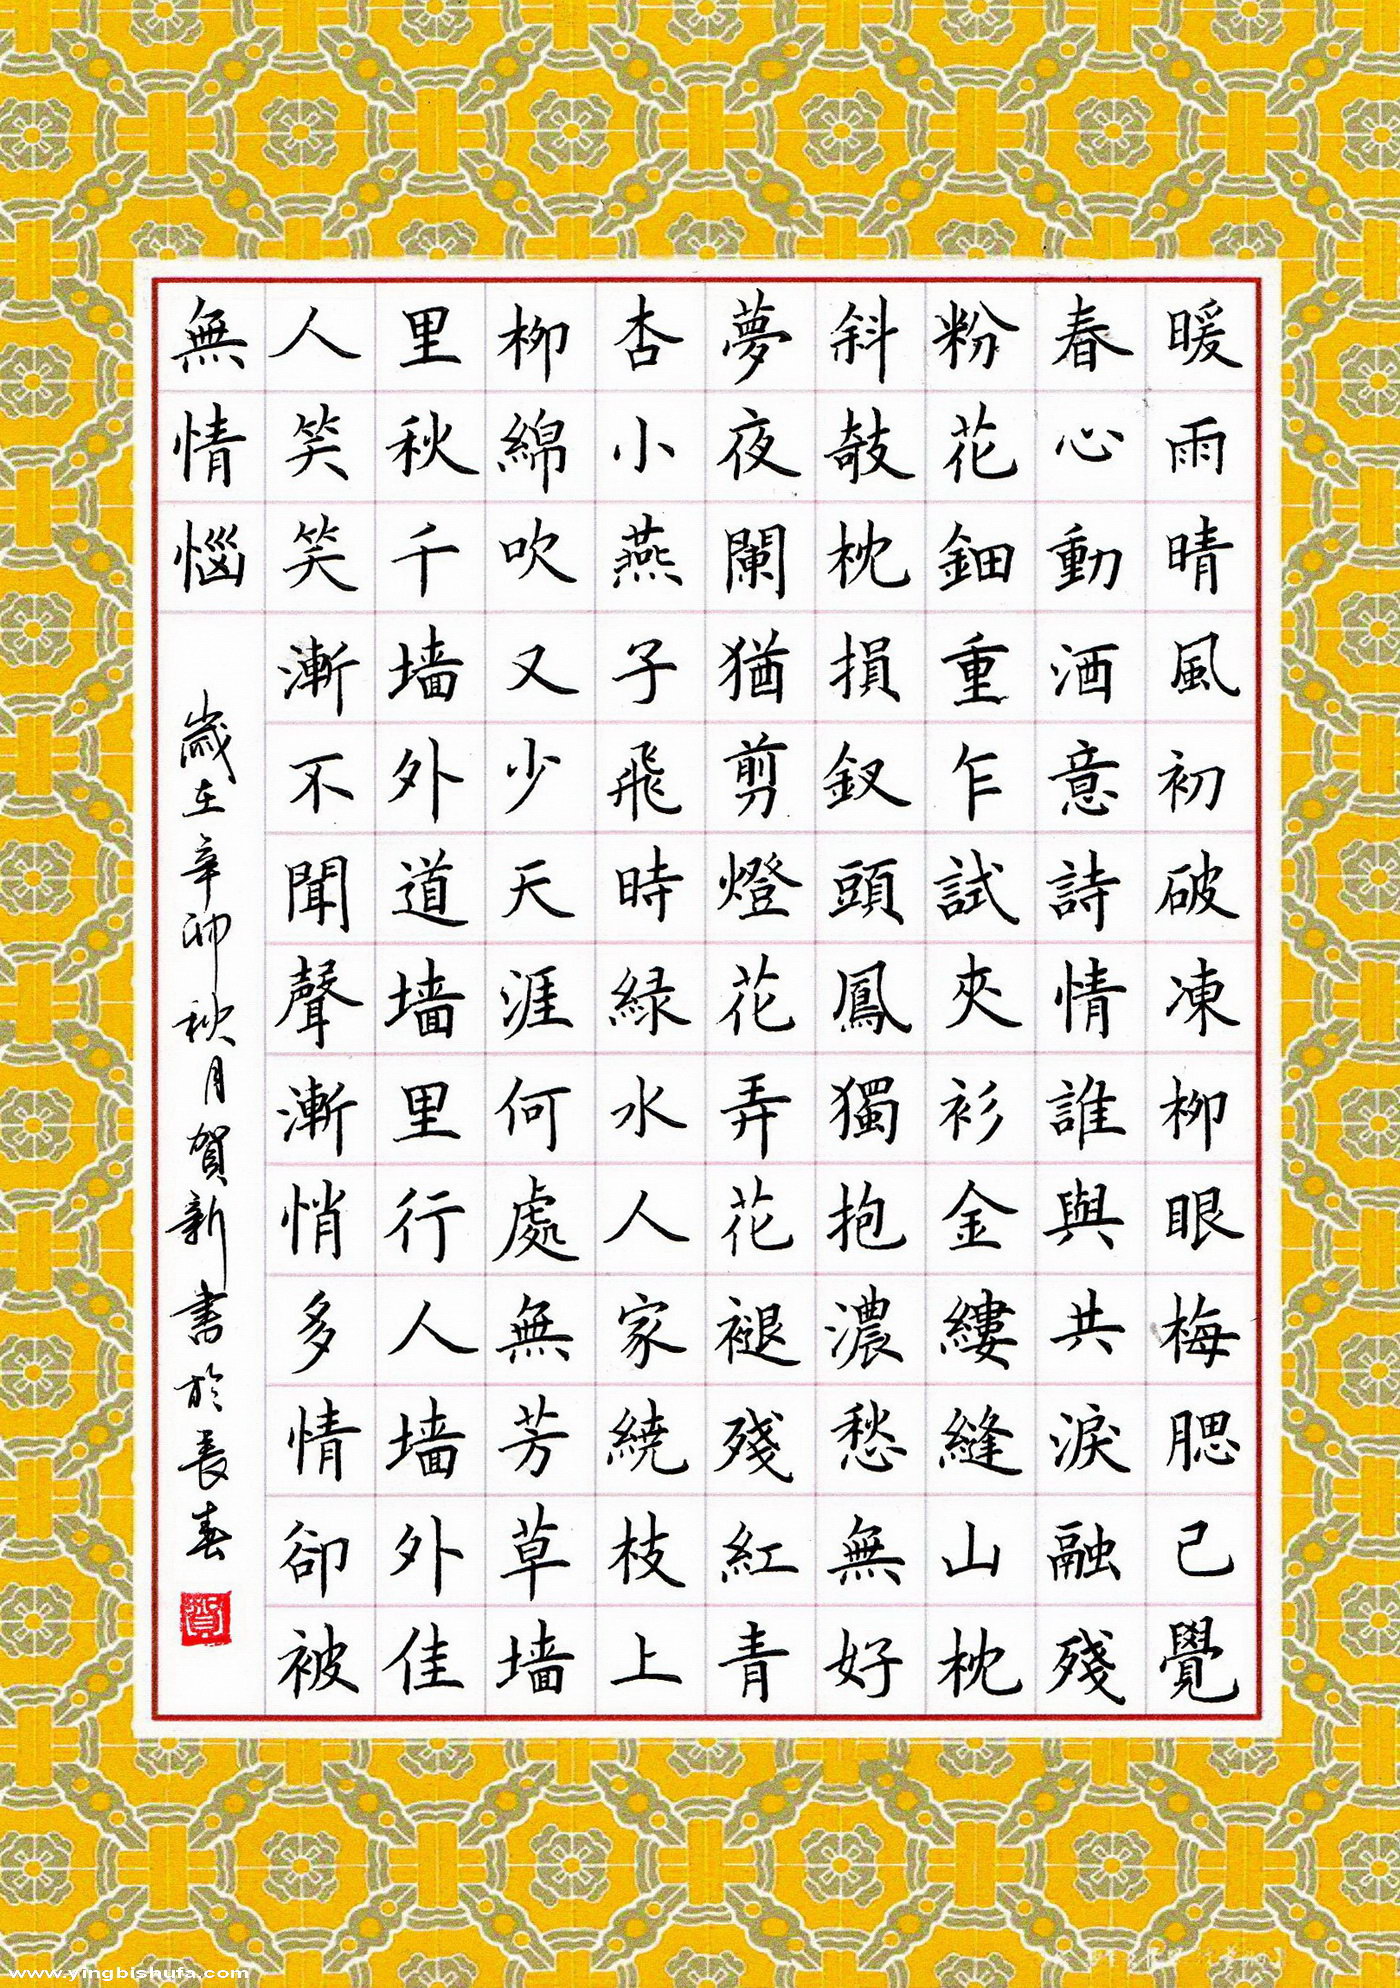 暖雨晴風初破凍柳眼梅腮已覺
春心動酒意詩情誰與共淚融殘
粉花鈿重乍試夾衫金縷縫山枕
斜攲枕損釵頭鳳獨抱濃愁無好
夢夜闌猶剪燈花弄花褪殘紅青
杏小燕子飛時緑水人家繞枝上
柳綿吹又少天涯何處無芳草墙
里秋千墙外道墙里行人墙外佳
人笑笑漸不聞聲漸悄多情卻被
無情惱
歲在辛卯秋月賀新書於長春
賀
www.yingbishufa.com